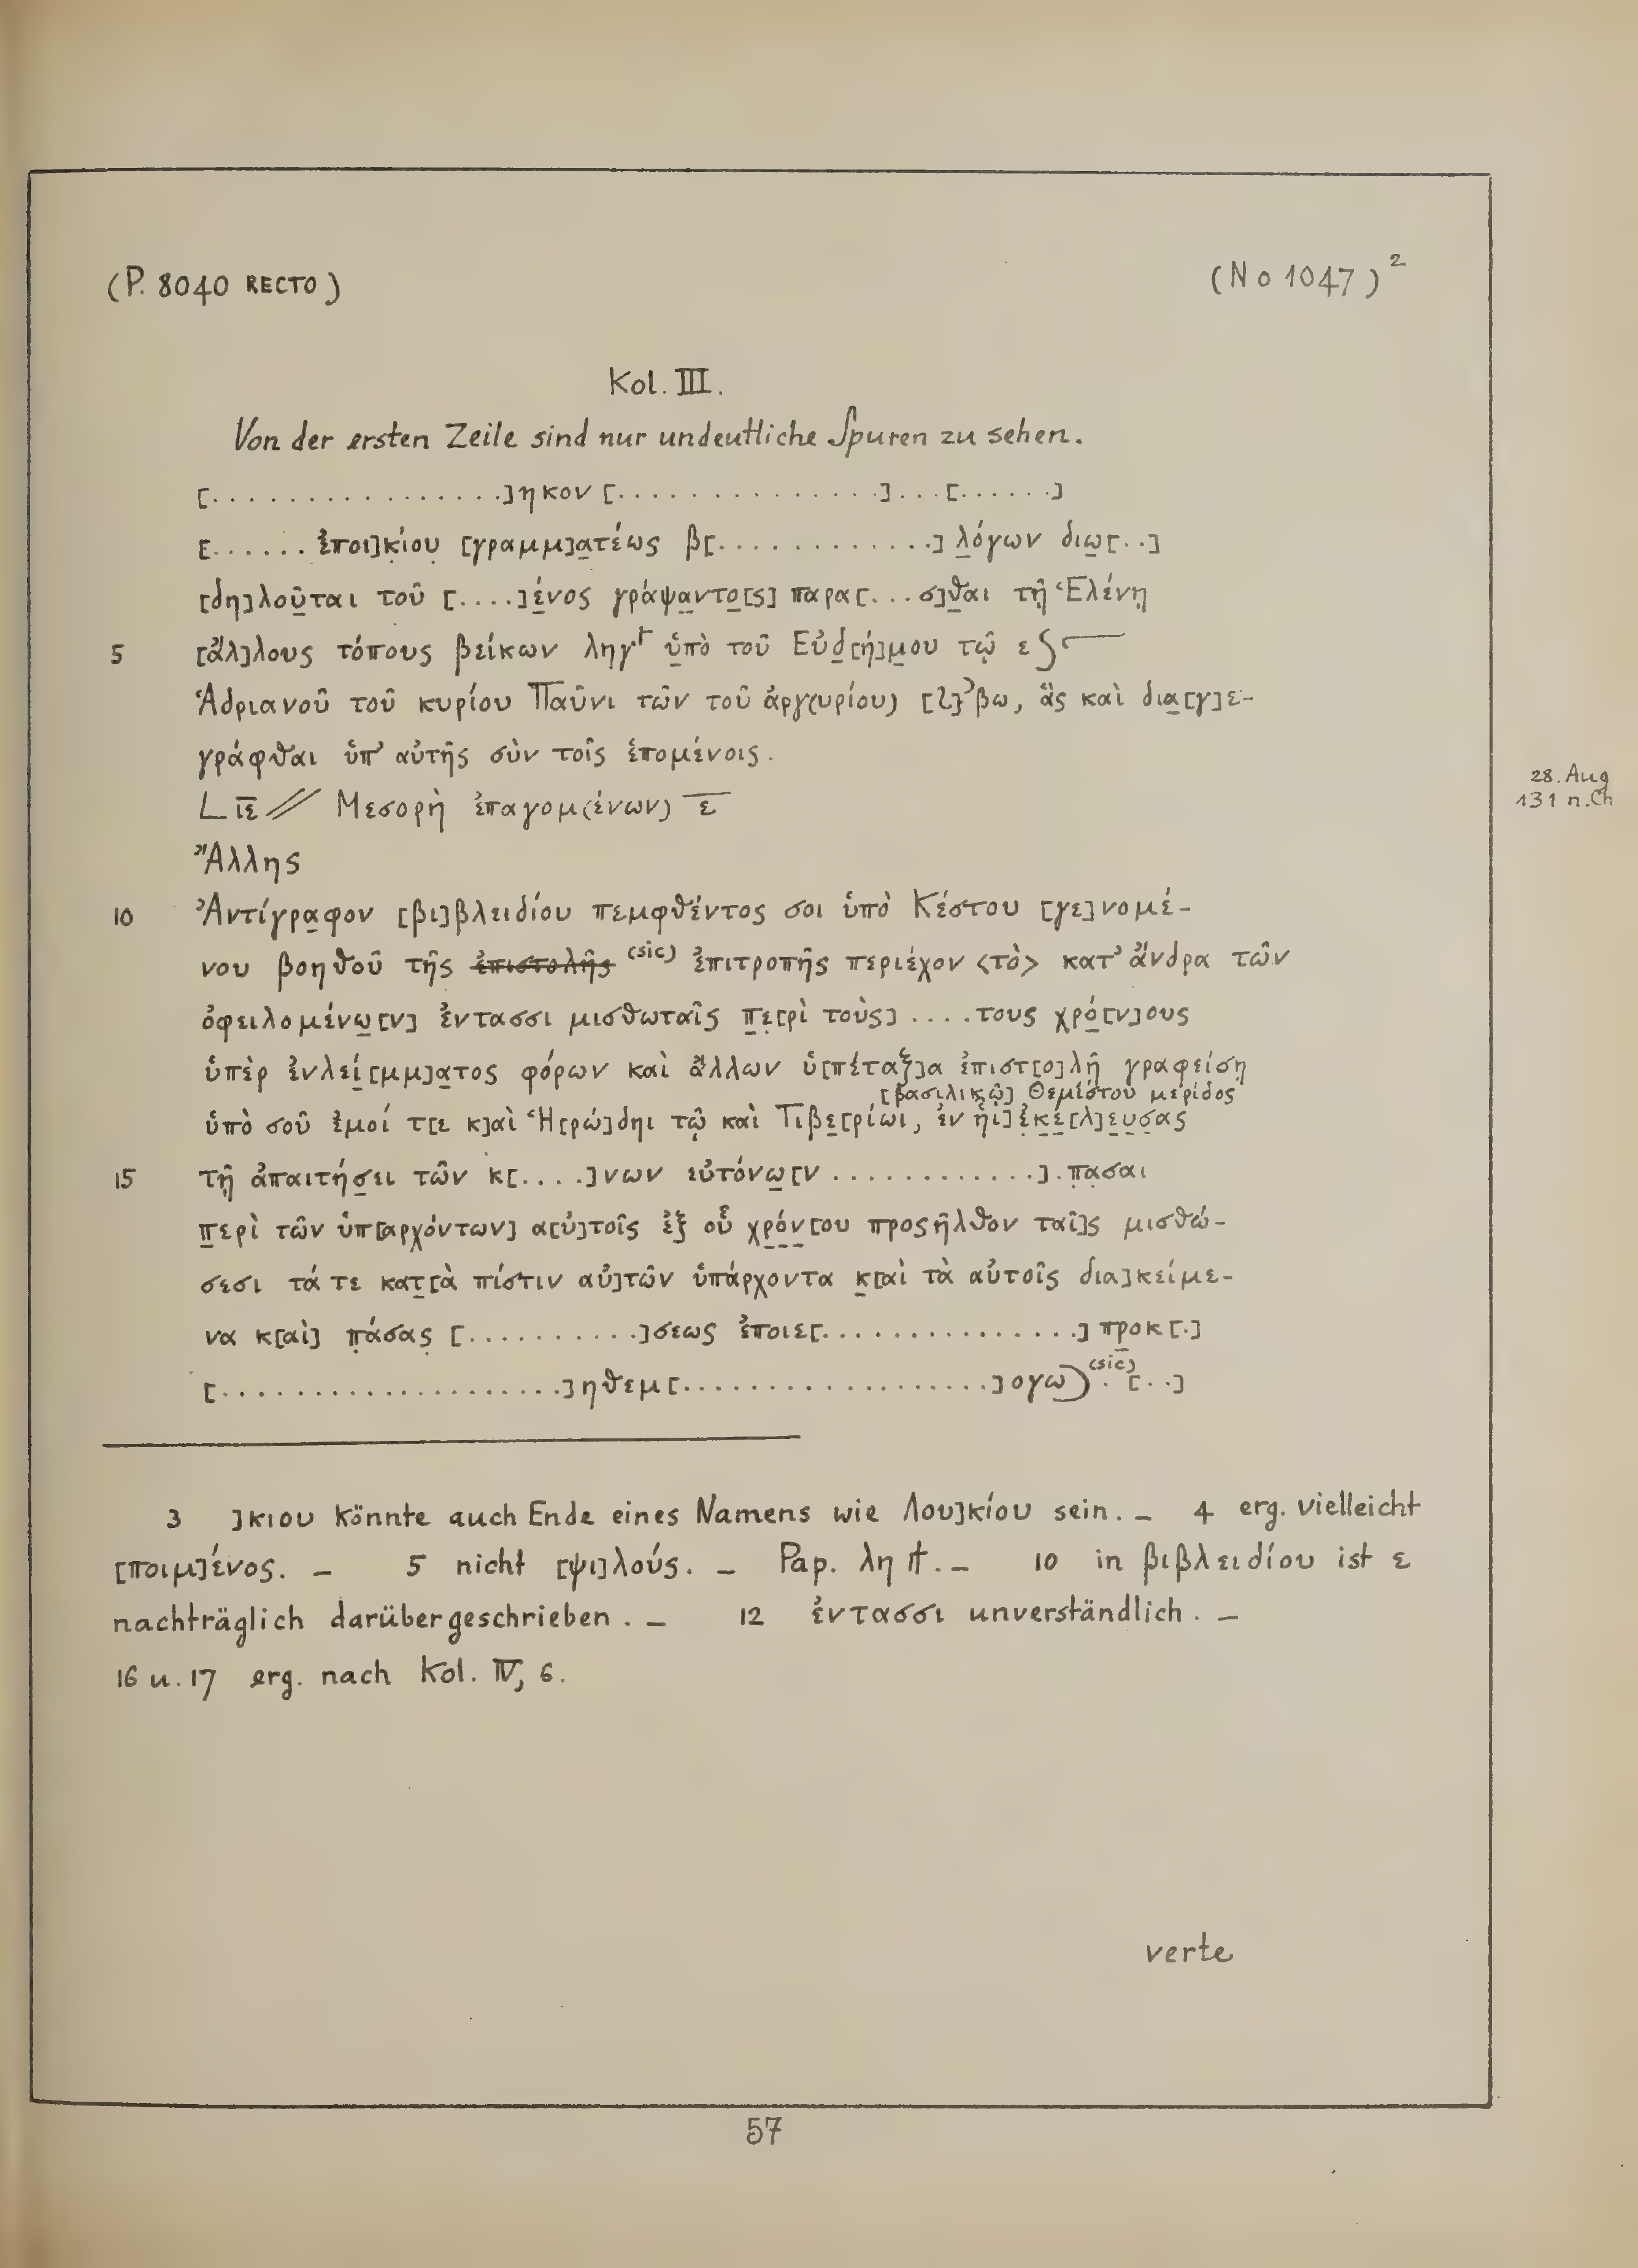 (P. 8040 RECTO)
(No 1047)²
Kol. III.
Von der ersten Zeile sind nur undeutliche Spuren zu sehen.
[................]ηκον[..............]...[......]
[...... ἐποι]κ̣ίου̣ [γραμμ]α̲τέως β[............] λ̲όγων διω̲[..]
[δη]λοῦ̲ται τοῦ [....]έ̲νος γράψα̲ντο̲[ς] παρα[...σ]θ̲αι τῇ Ἑλένῃ
5 [ἄλ]λους τόπους βείκων ληγ ὑ̲πὸ τοῦ Εὐδ̲[ή]μ̲ου τῷ ε
Ἁδριανοῦ τοῦ κυρίου Παῦνι τῶν τοῦ ἀργ(υρίου) βω, ἃς καὶ δια̲[γ]ε-
γράφθαι ὑπ' αὐτῆς σὺν τοῖς ἑπομένοις.
L ιε̅ // Μεσορὴ ἐπαγομ(ένων) ε̅
28. Aug
131 n. Ch
Ἄλλης
10 Ἀντίγρα̲φον [βι]βλειδίου πεμφθέντος σοι ὑπὸ Κέστου [γε]νομέ-
νου βοηθοῦ τῆς ἐπιστολῆς (sic) ἐπιτροπῆς περιέχον <τὸ> κατ' ἄνδρα τῶν
ὀφειλομένω̲[ν] ἐντασσι μισθωταῖς π̲ε̣[ρὶ τοὺς] ....τους χρό̲[ν]ους
ὑπὲρ ἐνλεί̲[μμ]α̲τος φόρων καὶ ἄλλων ὑ[πέταξ]α ἐπιστ[ο]λῇ γραφείσῃ
[βασιλικῷ] Θεμίστου μερίδος
ὑπὸ σοῦ ἐμοί τ[ε κ]αὶ Ἡ[ρώ]δηι τῷ καὶ Τιβε̲[ρίωι, ἐν ἧι] ἐ̲κ̲έ̲[λ]ε̲υ̲σ̲ας
15 τῇ ἀπαιτήσ̲ει τῶν κ[....]νων εὐτόνω̲[ν ............]. π̣α̣σαι
π̲ερὶ τῶν ὑπ[αρχόντων] α[ὐ]τοῖς ἐξ οὗ χρ̲ό̲ν̲[ου προςῆλθον ταῖ]ς μισθώ-
σεσι τά τε κατ̲[ὰ πίστιν αὐ]τῶν ὑπάρχοντα κ̲[αὶ τὰ αὐτοῖς δια]κείμε-
να κ[αὶ] π̣άσας̣ [..........]σεως ἐποιε[..............] πρ̲οκ[.]
[..................]ηθεμ[................]ογω) (sic) . [..]
3 ]κιου könnte auch Ende eines Namens wie Λου]κίου sein. – 4 erg. vielleicht
[ποιμ]ένος. – 5 nicht [ψι]λούς. – Pap. λη. – 10 in βιβλειδίου ist ε
nachträglich darübergeschrieben. – 12 ἐντασσι unverständlich. –
16 u. 17 erg. nach Kol. IV, 6.
verte
57